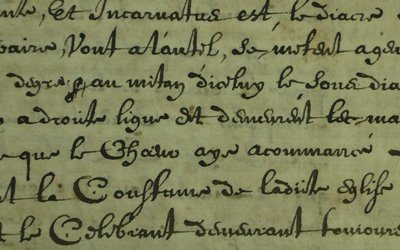 nte, Et Incarnatus est, le diacre
paire, Vont a lautel, Se metent a gen
degre p au mitan diceluy le Sous dia
a droite ligne et demeurent les ma
e que le Chœur aye acommancé
t la Coustume de ladite eglise
t le Celebrant demeurant toujours